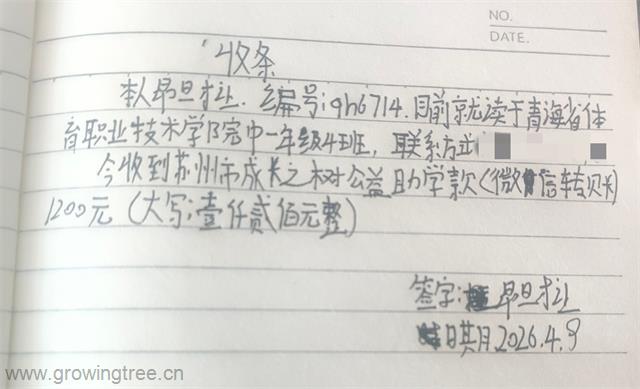 NO.
DATE.
收条
本人昂旦才让.编号:qh6714.目前就读于青海省体
育职业技术学院中一年级4班,联系方式
今收到苏州市成长之树公益助学款(微信转账)
1200元(大写:壹仟贰佰元整)
签字: 昂旦才让
日期 2026.4.9
www.growingtree.cn